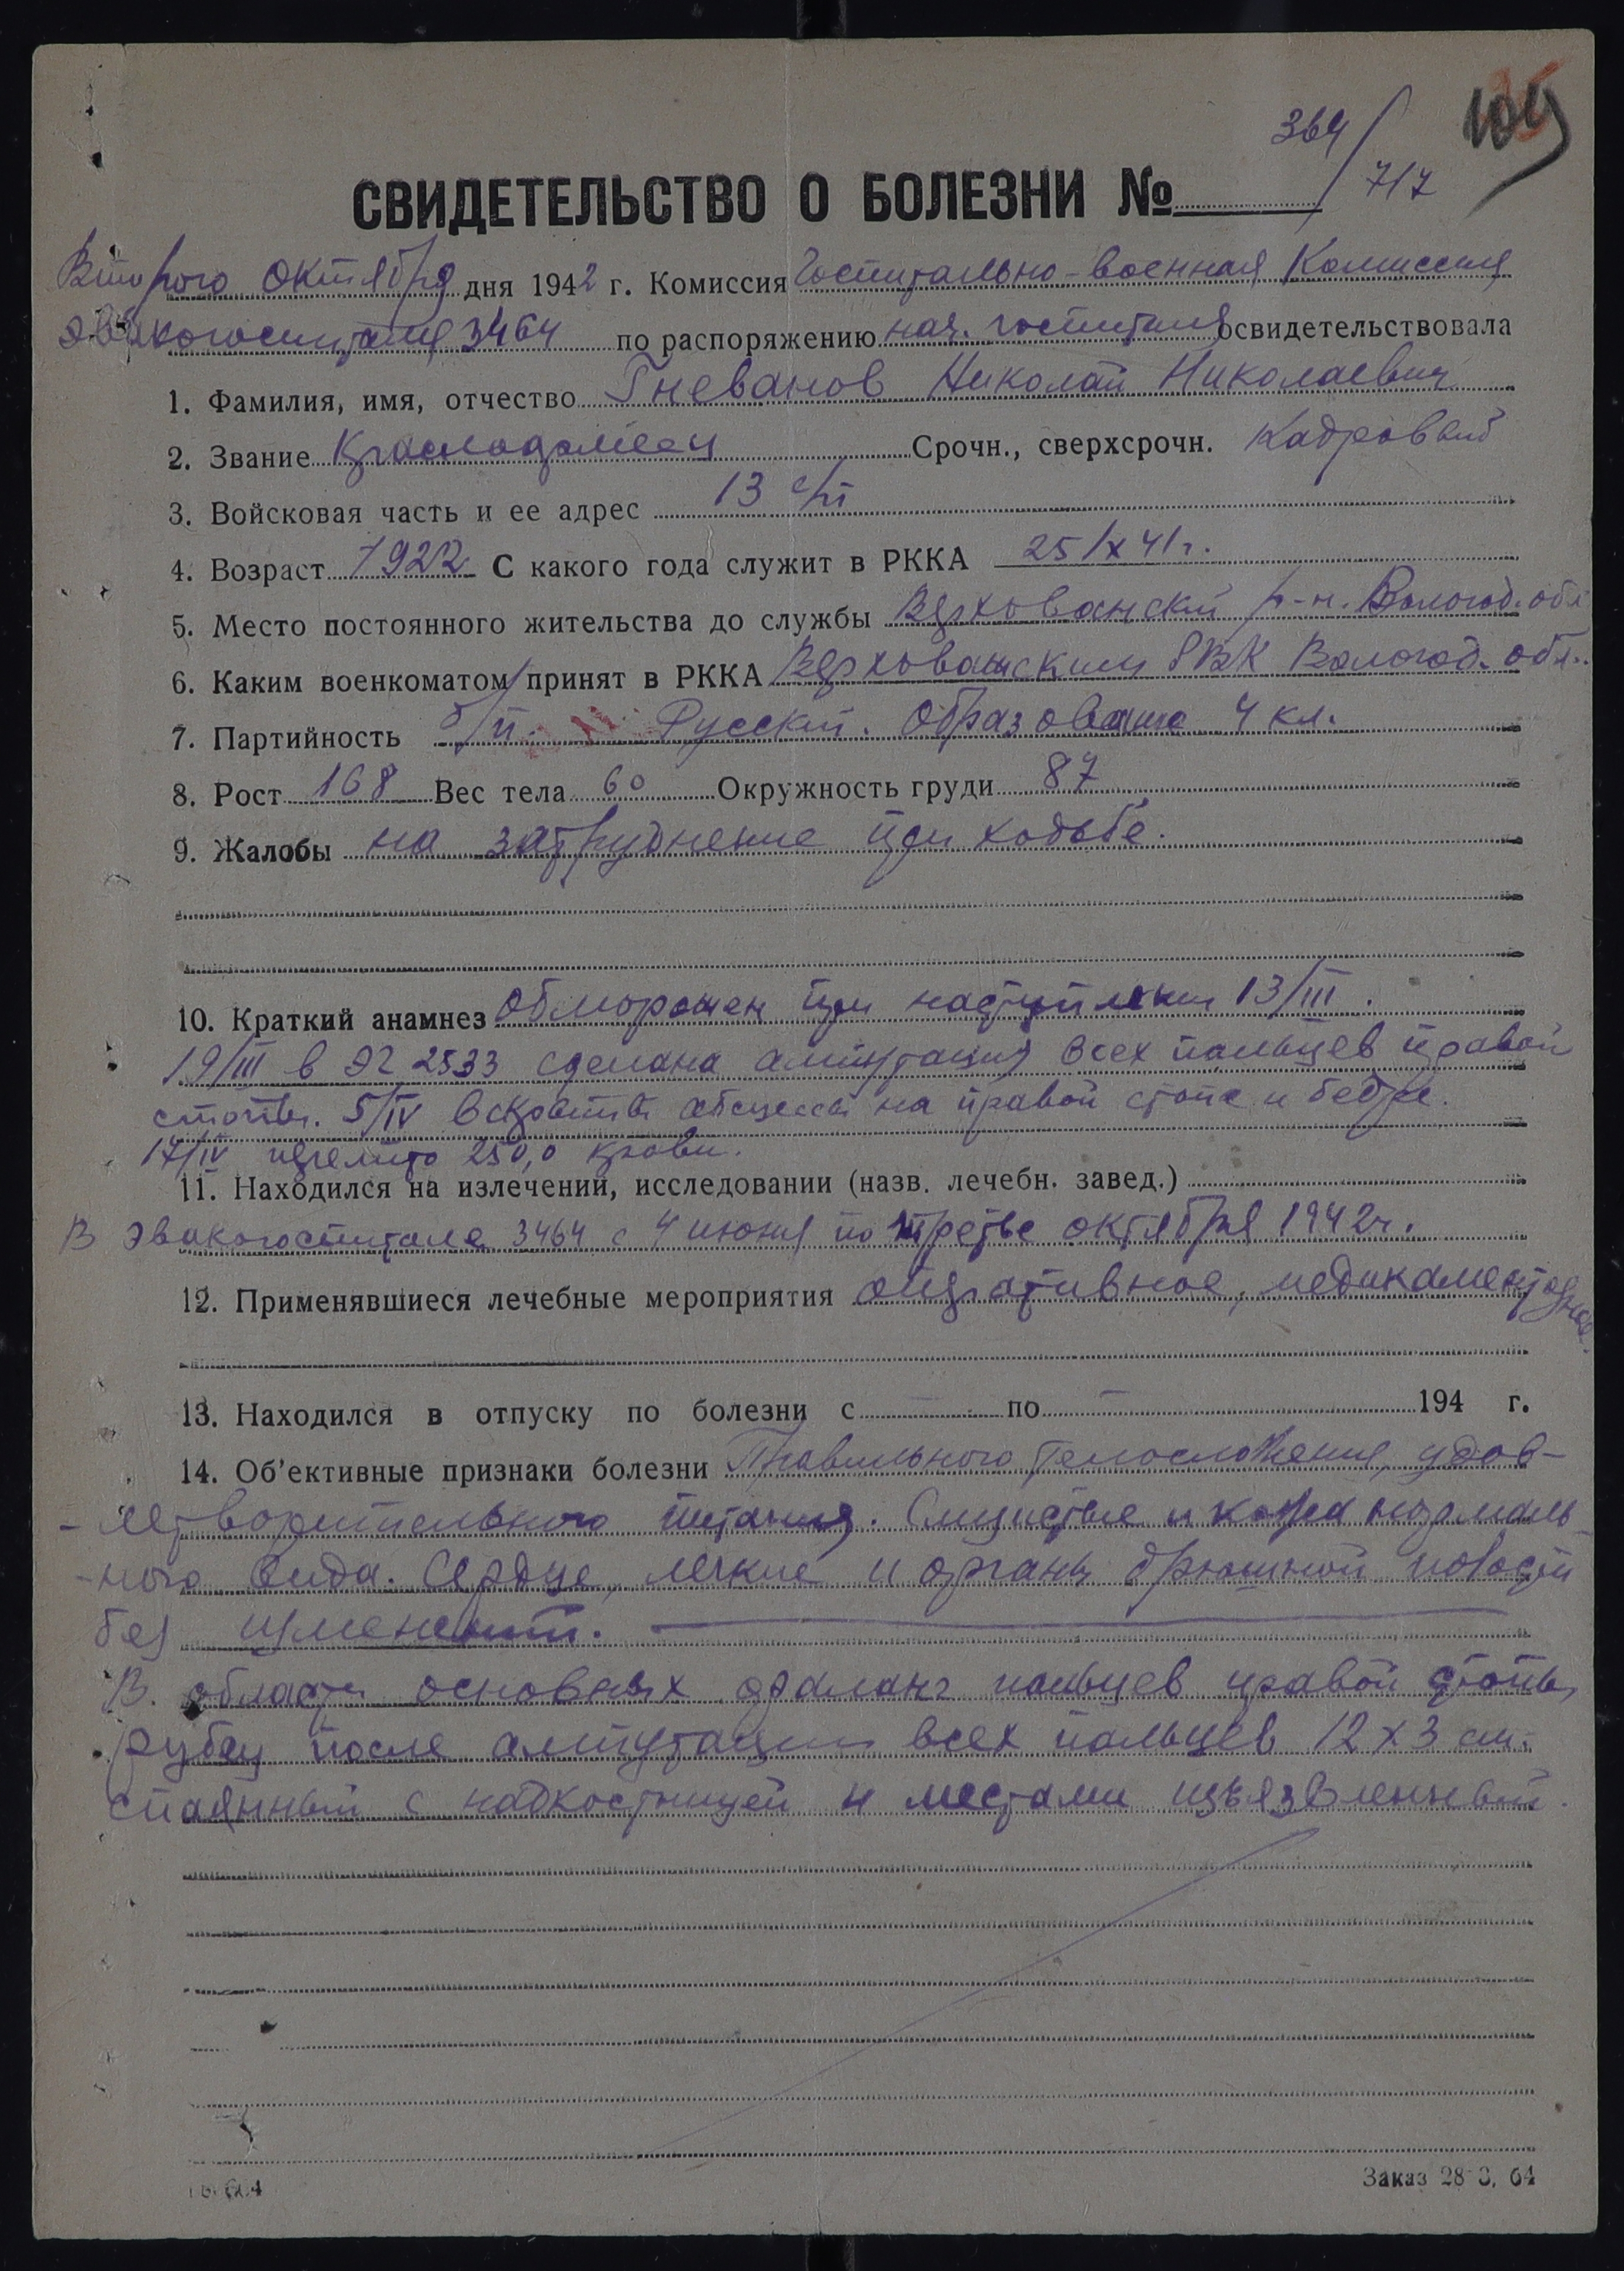 364/717
109
СВИДЕТЕЛЬСТВО О БОЛЕЗНИ №
Второго октября дня 1942 г. Комиссия Госпитально-военная Комиссия
эвакогоспиталя 3464 по распоряжению нач. госпиталя освидетельствовала
1. Фамилия, имя, отчество Гневанов Николай Николаевич
2. Звание Красноармеец Срочн., сверхсрочн. Кадровый
3. Войсковая часть и ее адрес 13 с/п
4. Возраст 1922 С какого года служит в РККА 25/X 41 г.
5. Место постоянного жительства до службы Верховажский р-н. Вологод. обл.
6. Каким военкоматом принят в РККА Верховажским РВК Вологод. обл.
7. Партийность б/п. Русский. Образование 4 кл.
8. Рост 168 Вес тела 60 Окружность груди 87
9. Жалобы на затруднение при ходьбе.
10. Краткий анамнез Обморожен при наступлении 13/III.
19/III в ЭГ 2533 сделана ампутация всех пальцев правой
стопы. 5/IV вскрыты абсцессы на правой стопе и бедре.
17/IV перелито 250,0 крови.
11. Находился на излечении, исследовании (назв. лечебн. завед.)
В эвакогоспитале 3464 с 4 июня по третье октября 1942 г.
12. Применявшиеся лечебные мероприятия оперативное, медикаментозное.
13. Находился в отпуску по болезни с по 194 г.
14. Об'ективные признаки болезни Правильного телосложения, удов-
-летворительного питания. Слизистые и кожа нормаль-
-ного вида. Сердце, легкие и органы брюшной полости
без изменений.
В области основных фаланг пальцев правой стопы
рубец после ампутации всех пальцев 12 х 3 см.
спаянный с надкостницей и местами изъязвленный.
Заказ 28 64